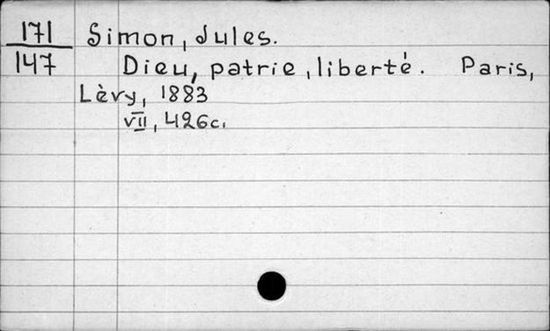 171
147
Simon, Jules.
Dieu, patrie, liberté. Paris,
Lèvy, 1883
VII, 426c.